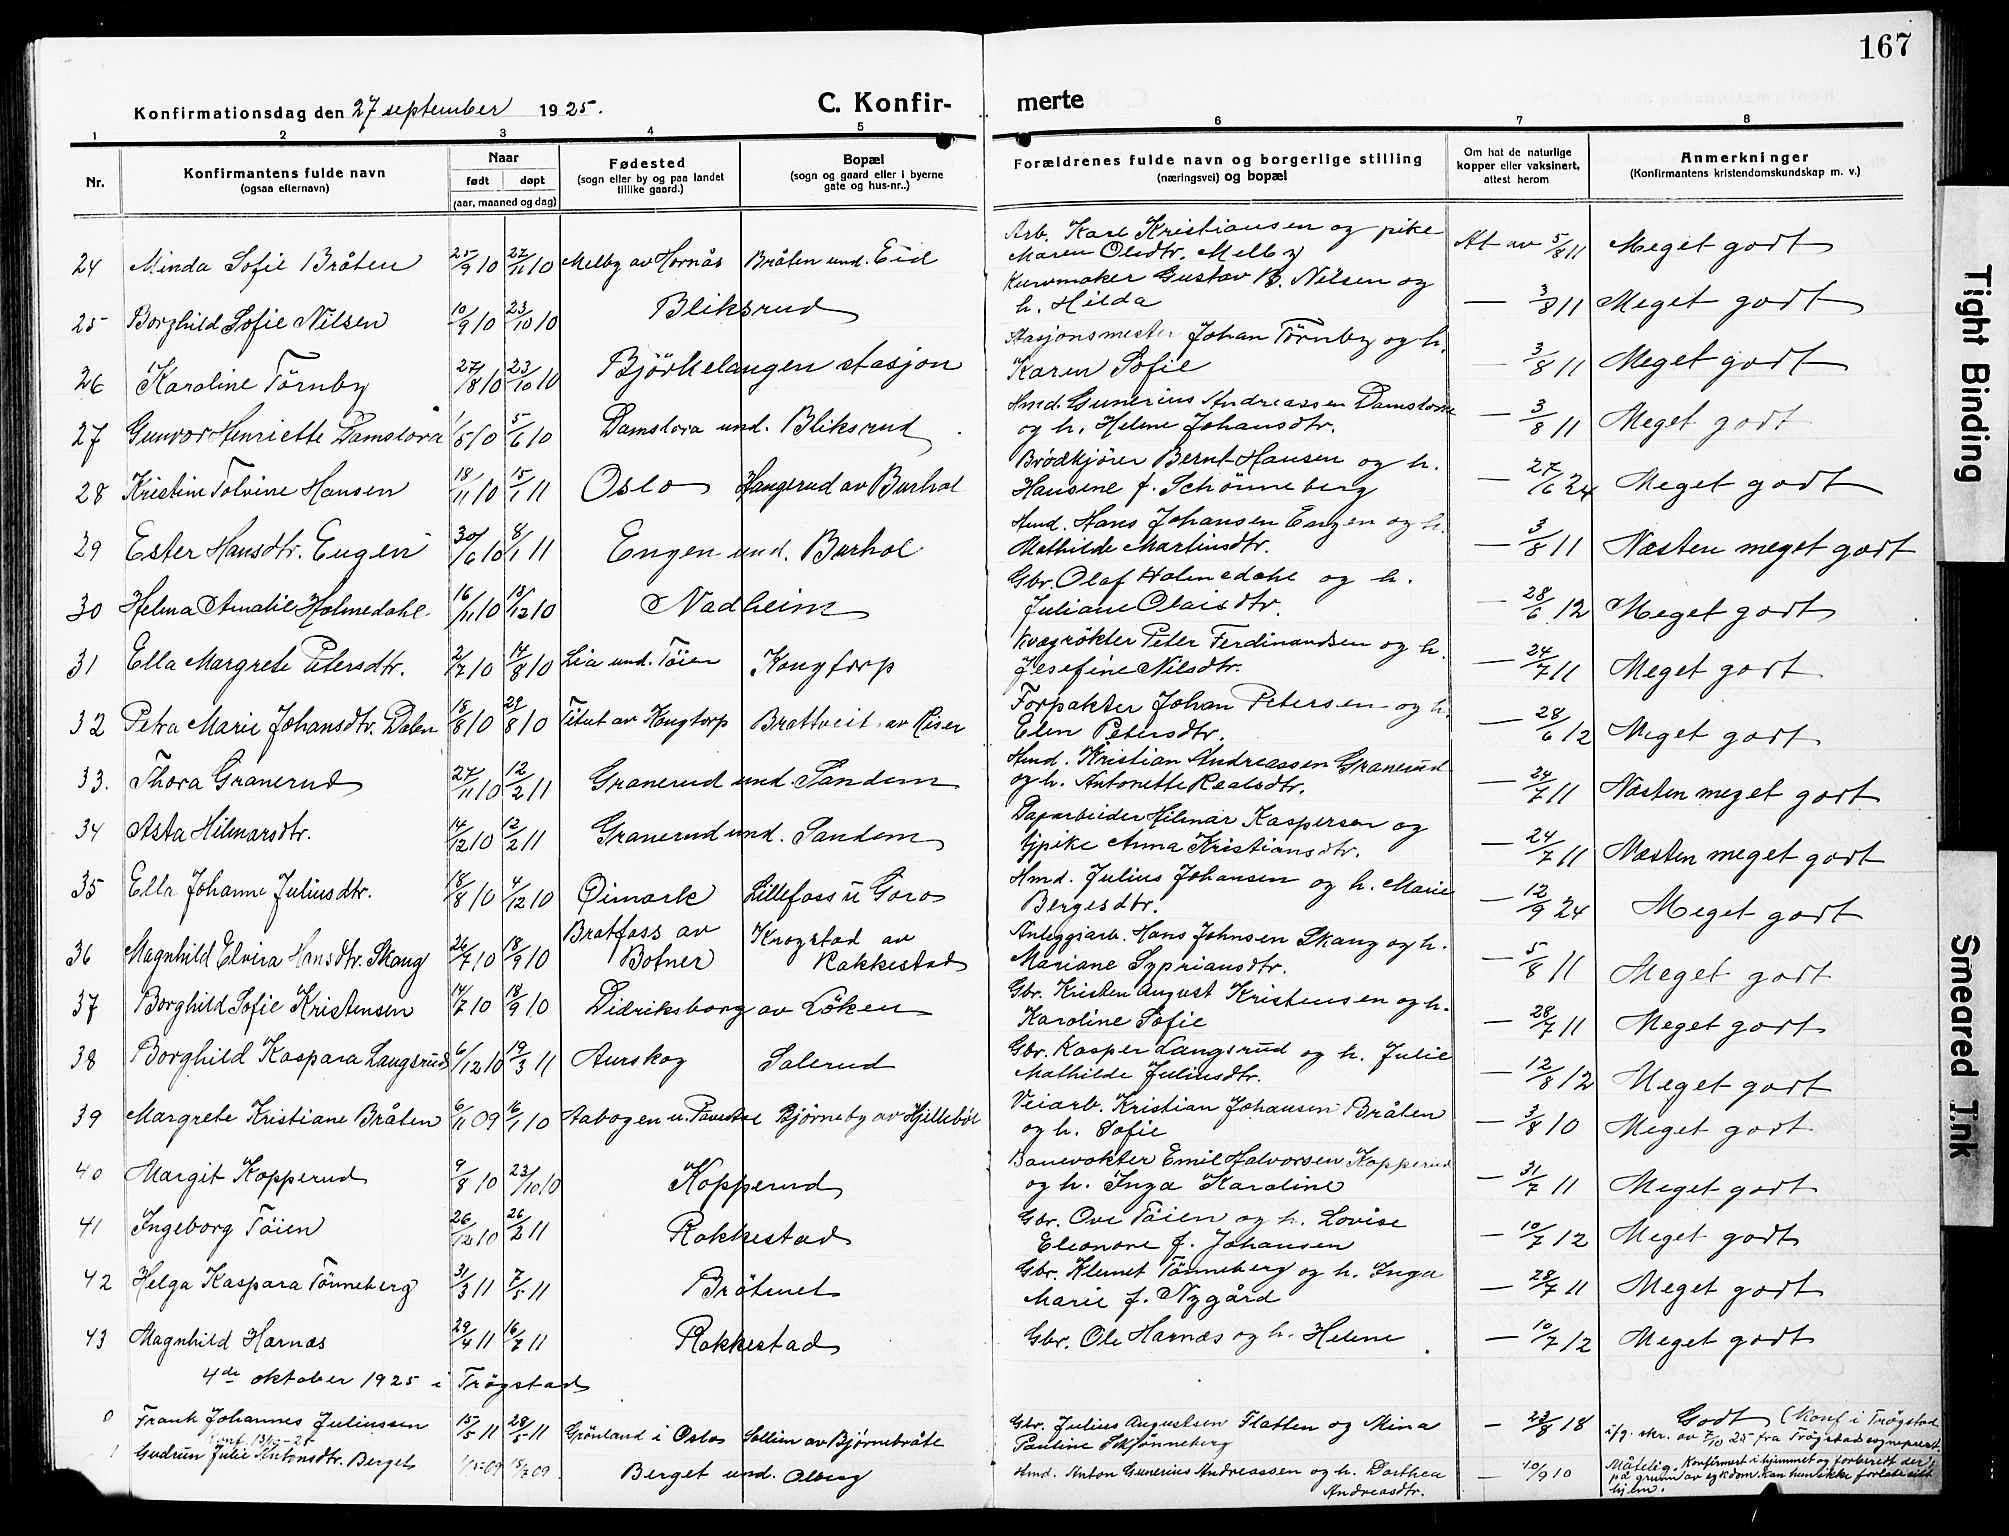 167
Konfirmationsdag den 27 september 1925.
C. Konfir- merte
1 2 3 4 5 6 7 8
Nr.
Konfirmantens fulde navn
(ogsaa efternavn)
Naar
født døpt
(aar, maaned og dag)
Fødested
(sogn eller by og paa landet
tillike gaard.)
Bopæl
(sogn og gaard eller i byerne
gate og hus-nr.,)
Forældrenes fulde navn og borgerlige stilling
(næringsvei) og bopæl
Om hat de naturlige
kopper eller vaksinert,
attest herom
Anmerkninger
(Konfirmantens kristendomskundskap m. v.)
Arb. Karl Kristiansen og pike
24 Minda Sofie Bråten 25/9 10 27/11 10 Melby av Hornås Bråten und. Eid Maren Olsdtr. Melby At av 5/8 11 Meget godt
Kurvmaker Gustav B. Nilsen og
25 Borghild Sofie Nilsen 10/9 10 23/10 10 Bliksrud h. Hilda — 3/8 11 Meget godt
Stasjonsmester Johan Törnby og h.
26 Karoline Törnby 27/8 10 23/10 10 Björkelangen stasjon Karen Sofie — 3/8 11 Meget godt
Hmd. Gunerius Andreassen Damslora
27 Gunvor Henriette Damslora 1/5 10 5/6 10 Damslora und. Bliksrud og h. Helene Johansdtr. — 3/8 11 Meget godt
Brödkjörer Bernt Hansen og h.
28 Kristine Tolvine Hansen 18/11 10 15/1 11 Oslo Haugerud av Burhol Hansene f. Schönneberg — 27/6 24 Meget godt
Hmd. Hans Johansen Engen og h.
29 Ester Hansdtr. Engen 30/6 10 8/1 11 Engen und. Burhol Mathilde Martinsdtr. — 3/8 11 Næsten meget godt
Gbr. Olaf Holmedahl og h.
30 Helma Amalie Holmedahl 16/11 10 18/12 10 Nadheim Juliane Olaisdtr. — 28/6 12 Meget godt
Kvægrökter Peter Ferdinandsen og h.
31 Ella Margrete Petersdtr. 2/7 10 14/8 10 Lia und. Töien Kongtorp Josefine Nilsdtr. — 24/7 11 Meget godt
Forpakter Johan Petersen og h.
32 Petra Marie Johansdtr. Dalen 18/8 10 28/8 10 Titut av Kongtorp Brattveit av Riser Elen Petersdtr. — 28/6 12 Meget godt
Hmd. Kristian Andreassen Granerud
33. Thora Granerud 27/11 10 12/2 11 Granerud und. Sandem og h. Antonette Realsdtr. — 24/7 11 Næsten meget godt
Dagarbeider Hilmar Kaspersen og
34 Asta Hilmarsdtr. 14/12 10 12/2 11 Granerud und. Sandem tjpike Anna Kristiansdtr. — 24/7 11 Næsten meget godt
Hmd. Julius Johansen og h. Marie
35 Ella Johanne Juliusdtr. 18/8 10 4/12 10 Øimark Lillefoss u Goro Bergesdtr. — 12/9 24 Meget godt
Bratfoss av Krogstad av Anleggsarb. Hans Johnsen Skaug og h.
36 Magnhild Elvira Hansdtr. Skaug 26/7 10 18/9 10 Botner Rakkestad Mariane Sypriansdtr. — 5/8 11 Meget godt
Gbr. Kristen August Kristensen og h.
37 Borghild Sofie Kristensen 14/7 10 18/9 10 Didriksborg av Löken Karoline Sofie — 28/7 11 Meget godt
Gbr. Kasper Langsrud og h. Julie
38 Borghild Kaspara Langsrud 6/12 10 19/3 11 Aurskog Salerud Mathilde Juliusdtr. — 12/8 12 Meget godt
Veiarb. Kristian Johansen Bråten
39 Margrete Kristiane Bråten 6/11 09 16/1 10 Aabogen u. Bjørneby av Hjellebøl og h. Sofie — 3/8 10 Meget godt
Banevokter Emil Halvorsen Kopperud
40 Margit Kopperud 9/8 10 23/10 10 Kopperud og h. Inga Karoline — 31/7 11 Meget godt
Gbr. Ove Töien og h. Lovise
41 Ingeborg Töien 26/12 10 26/2 11 Rakkestad Eleonore f. Johansen — 10/7 12 Meget godt
Gbr. Klemet Tönneberg og h. Inga
42 Helga Kaspara Tönneberg 31/3 11 7/5 11 Bråtnet Marie f. Nygård — 28/7 11 Meget godt
43 Magnhild Harnæs 29/4 11 16/7 11 Rakkestad Gbr. Ole Harnæs og h. Helene — 10/7 12 Meget godt
4de oktober 1925 i Trögstad
0 Frank Johannes Juliussen 15/5 11 28/5 11 Grönland i Oslo Sollien av Bjørnebråte Gbr. Julius Augustsen Flatten og Mina — 23/8 18 Godt (Konf i Trögstad
Konf. 13/10 - 25 Pauline Skjönneberg i/g. skr. av 7/10 25 fra Trögstad sogneprest.
1 Gudrun Julie Antonsdtr. Berget 09 18/7 09 Berget und. Olberg Hmd. Anton Gunerius Andreassen og h. Dorthea — 10/9 10 Måtelig. Konfirmert i hjemmet og forberedt der,
Andreasdtr. på grunn av sykdom kan hun ikke forlate sitt
hjem.
Tight Binding
Smeared Ink